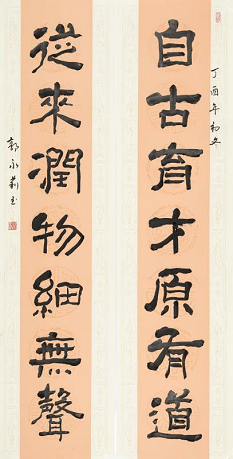 自古育才原有道
丁酉年初冬
從來潤物細無聲
郭永莉書